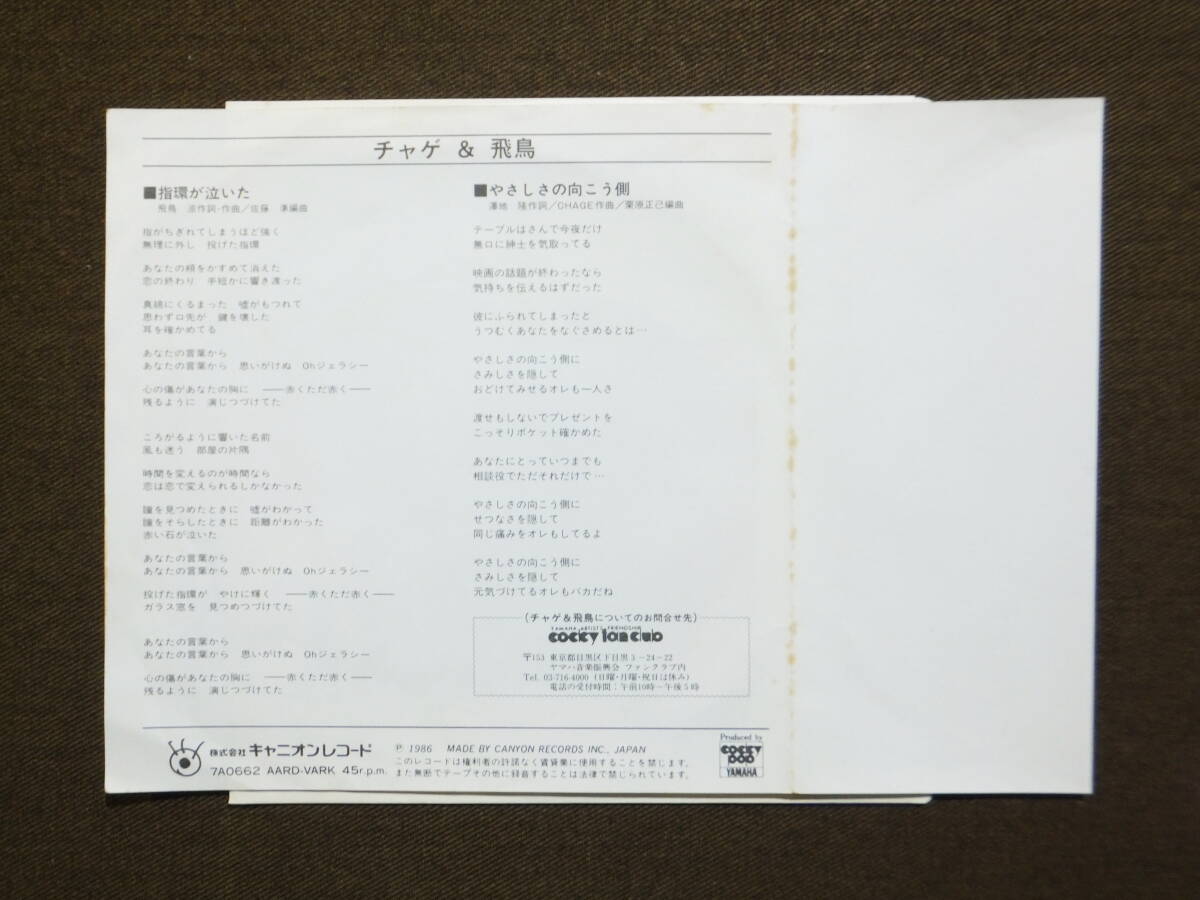 チャゲ & 飛鳥
■指環が泣いた
飛鳥 涼作詞・作曲／佐藤 準編曲
指がちぎれてしまうほど強く
無理に外し 投げた指環
あなたの頬をかすめて消えた
恋の終わり 手短かに響き渡った
真綿にくるまった 嘘がもつれて
思わず口先が 鍵を壊した
耳を確かめてる
あなたの言葉から
あなたの言葉から 思いがけぬ Ohジェラシー
心の傷があなたの胸に ──赤くただ赤く──
残るように 演じつづけてた
ころがるように響いた名前
風も迷う 部屋の片隅
時間を変えるのが時間なら
恋は恋で変えられるしかなかった
瞳を見つめたときに 嘘がわかって
瞳をそらしたときに 距離がわかった
赤い石が泣いた
あなたの言葉から
あなたの言葉から 思いがけぬ Ohジェラシー
投げた指環が やけに輝く ──赤くただ赤く──
ガラス窓を 見つめつづけてた
あなたの言葉から
あなたの言葉から 思いがけぬ Ohジェラシー
心の傷があなたの胸に ──赤くただ赤く──
残るように 演じつづけてた
■やさしさの向こう側
澤地 隆作詞／CHAGE作曲／栗原正己編曲
テーブルはさんで今夜だけ
無口に紳士を気取ってる
映画の話題が終わったなら
気持ちを伝えるはずだった
彼にふられてしまったと
うつむくあなたをなぐさめるとは…
やさしさの向こう側に
さみしさを隠して
おどけてみせるオレも一人さ
渡せもしないでプレゼントを
こっそりポケット確かめた
あなたにとっていつまでも
相談役でただそれだけで…
やさしさの向こう側に
せつなさを隠して
同じ痛みをオレもしてるよ
やさしさの向こう側に
さみしさを隠して
元気づけてるオレもバカだね
(チャゲ&飛鳥についてのお問合せ先)
YAMAHA ARTISTS FRIENDSHIP
cocky fan club
〒153 東京都目黒区下目黒3－24－22
ヤマハ音楽振興会 ファンクラブ内
Tel. 03-716-4000 (日曜・月曜・祝日は休み)
電話の受付時間：午前10時〜午後5時
株式会社 キャニオンレコード
7A0662 AARD-VARK 45r.p.m.
Ⓟ 1986 MADE BY CANYON RECORDS INC., JAPAN
このレコードは権利者の許諾なく賃貸業に使用することを禁じます。
また無断でテープその他に録音することは法律で禁じられています。
Produced by
COCKY
POP
YAMAHA